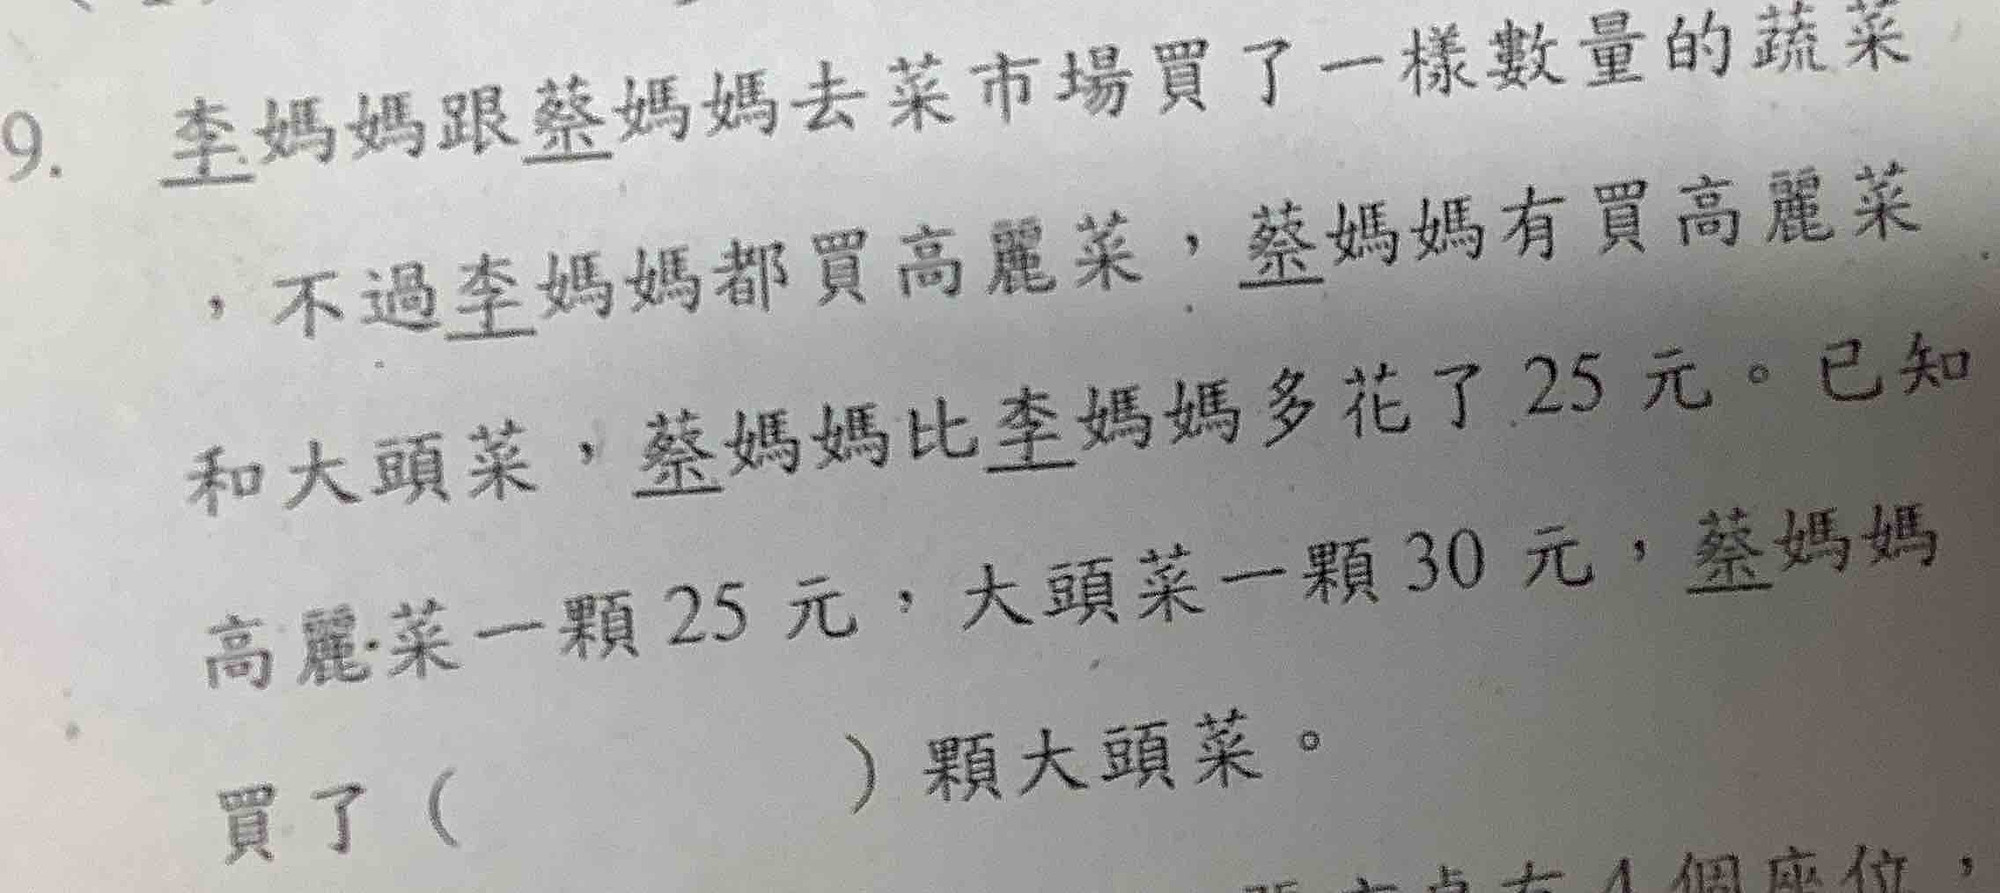 9. 李媽媽跟蔡媽媽去菜市場買了一樣數量的蔬菜
，不過李媽媽都買高麗菜，蔡媽媽有買高麗菜
和大頭菜，蔡媽媽比李媽媽多花了25元。已知
高麗菜一顆25元，大頭菜一顆30元，蔡媽媽
買了（ ）顆大頭菜。
有4個座位，